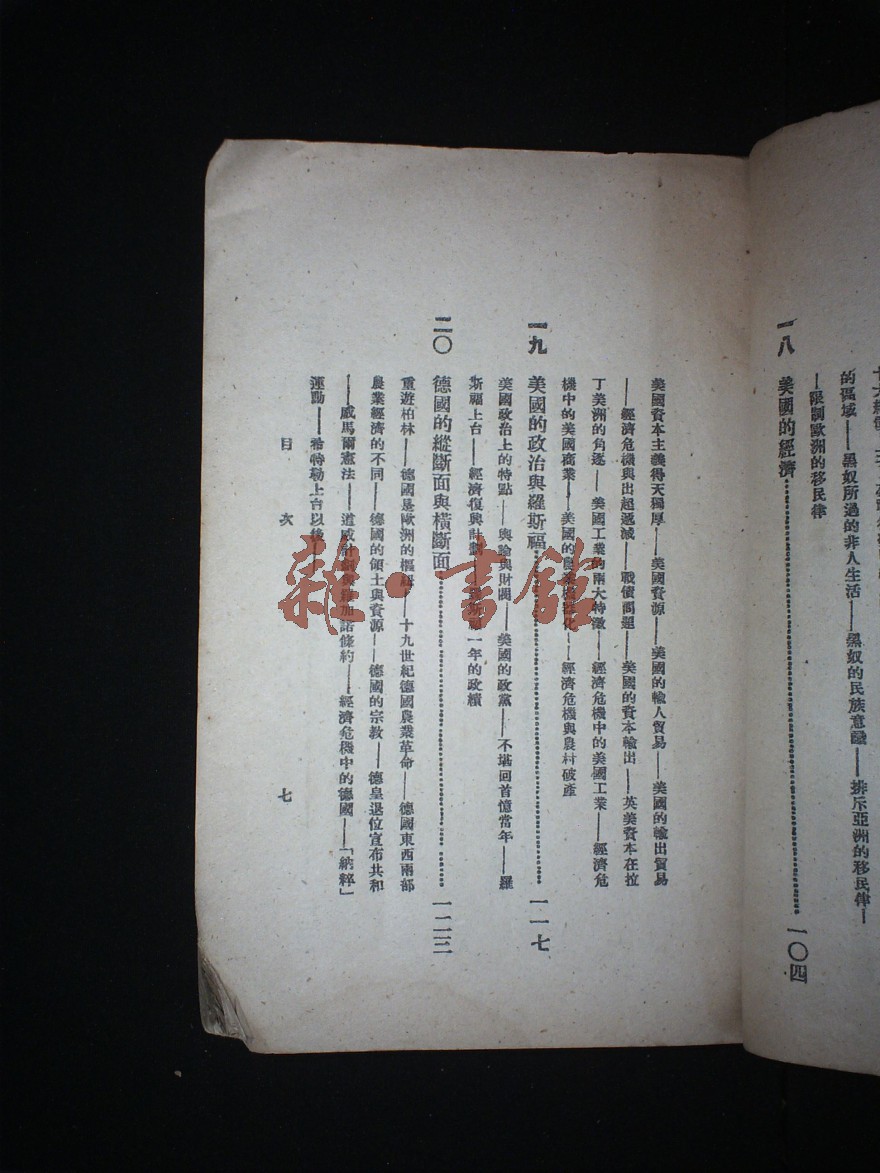 的區域——黑奴所過的非人生活——黑奴的民族意識——排斥亞洲的移民律—
—限制歐洲的移民律
一八 美國的經濟…………一〇四
美國資本主義得天獨厚——美國資源——美國的輸人貿易——美國的輸出貿易
——經濟危機與出超遞減——戰債問題——美國的資本輸出——英美資本在拉
丁美洲的角逐——美國工業的兩大特徵——經濟危機中的美國工業——經濟危
機中的美國商業——美國的農業機器化——經濟危機與農村破產
一九 美國的政治與羅斯福…………一一七
美國政治上的特點——輿論與財閥——美國的政黨——不堪回首憶當年——羅
斯福上台——經濟復興計劃——羅斯福一年的政績
二〇 德國的縱斷面與橫斷面…………一二三
重遊柏林——德國是歐洲的樞紐——十九世紀德國農業革命——德國東西兩部
農業經濟的不同——德國的領土與資源——德國的宗教——德皇退位宣布共和
——威馬爾憲法——道威計劃 加諾條約——經濟危機中的德國——「納粹」
運動——希特勒上台以後
目次 七
雜·書館